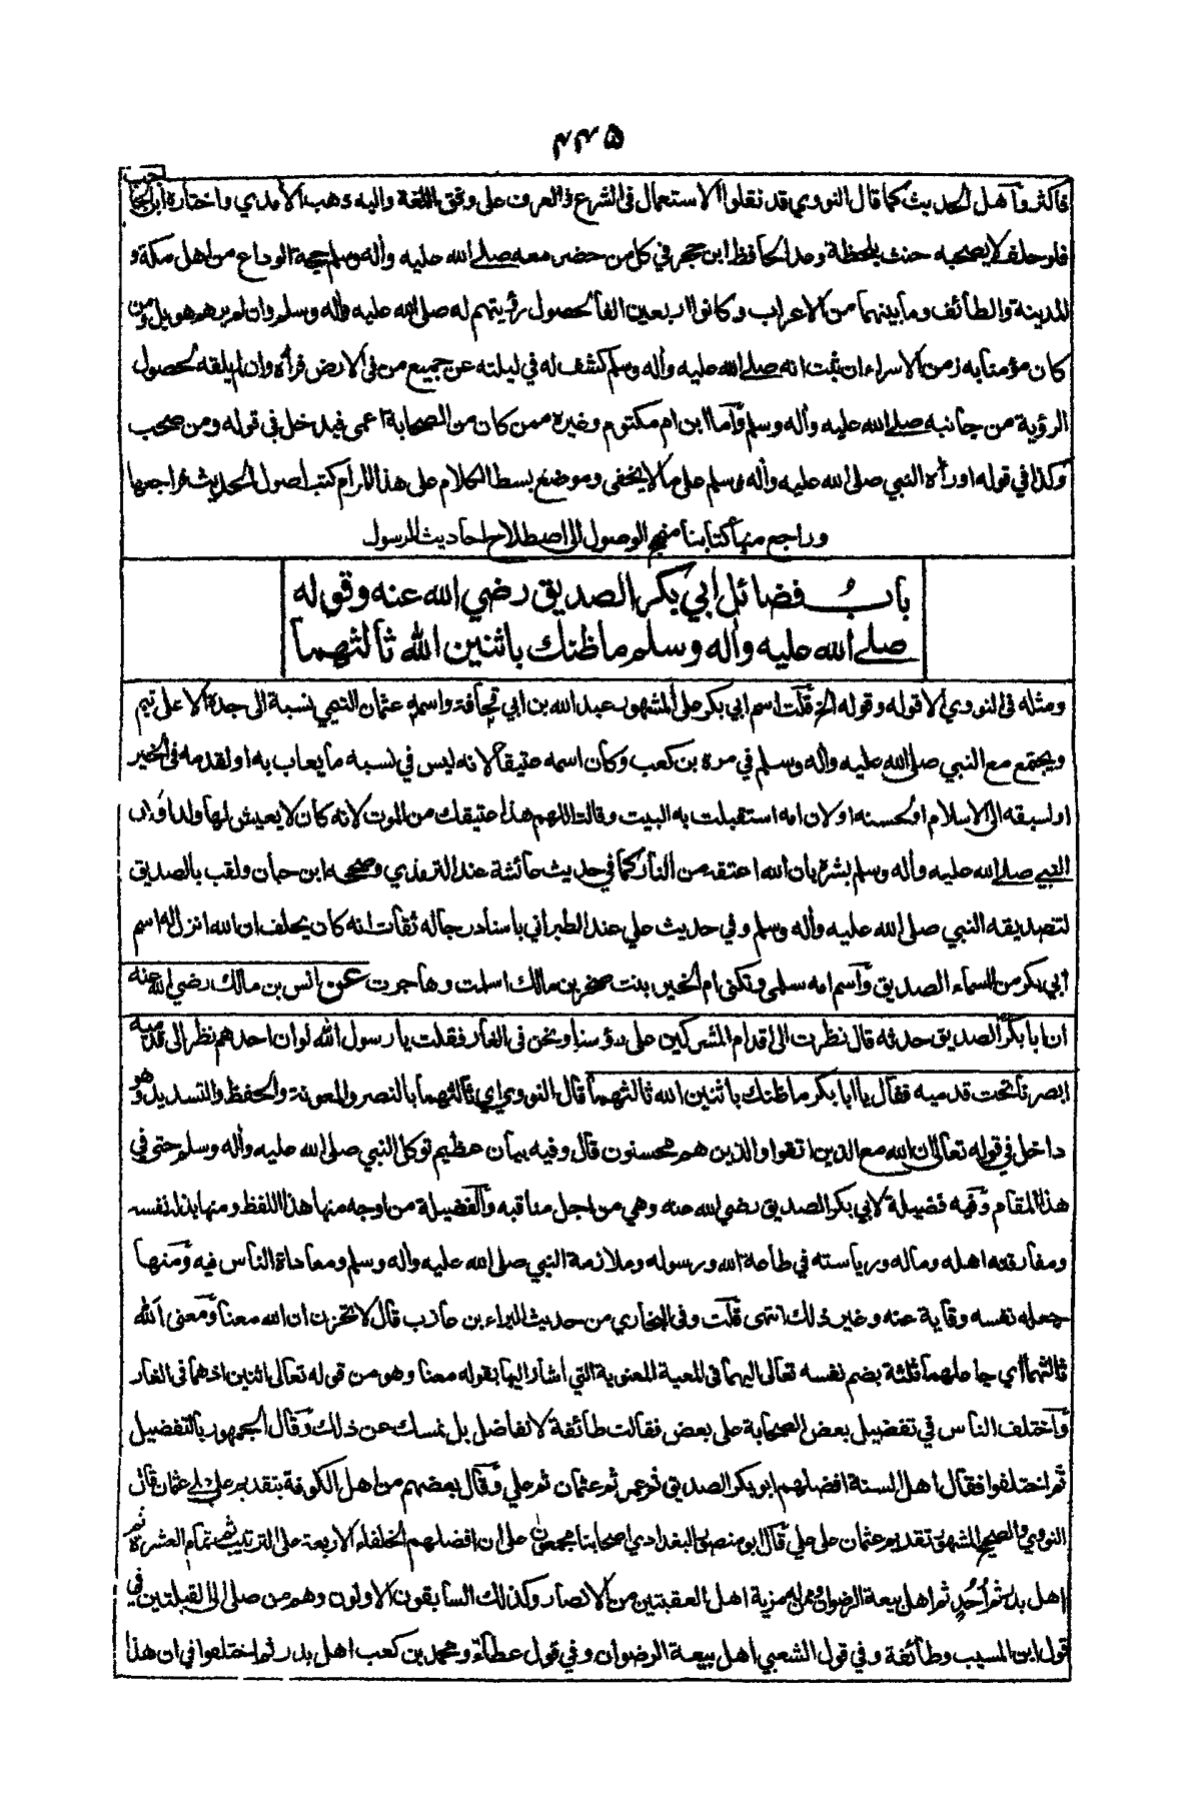 ۴۴۵
فاكثر وأهل الحديث كما قال النووي قد نقلوا الاستعمال في الشرع والعرف على وفق اللغة واليه ذهب الآمدي واختاره ابن الحاجب
فلو حلف لا يصحبه حنث بلحظة وعد الحافظ ابن حجر في كل من حضر معه صلى الله عليه وأله وسلم حجة الوداع من اهل مكة و
المدينة والطائف وما بينهما من الاعراب وكانوا اربعين الفا لحصول رؤيتهم له صلى الله عليه وأله وسلم وان لم يرهم هو بل ومن
كان مؤمنا به زمن الاسراء ان ثبت انه صلى الله عليه وأله وسلم كشف له في ليلته عن جميع من في الارض فرأه وان لم يلقه لحصول
الرؤية من جانبه صلى الله عليه وأله وسلم وأما ابن ام مكتوم وغيره ممن كان من الصحابة اعمى فيدخل في قوله ومن صحب
وكذا في قوله او رأه النبي صلى الله عليه وأله وسلم على ما لا يخفى وموضع بسط الكلام على هذا المرام كتب اصول الحديث فراجعها
وراجع منها كتابنا منهج الوصول الى اصطلاح احاديث الرسول
باب فضائل ابي بكر الصديق رضي الله عنه وقوله
صلى الله عليه وأله وسلم ما ظنك باثنين الله ثالثهما
ومثله في النووي الا قوله وقوله الخ قلت اسم ابي بكر على المشهور عبد الله بن ابي قحافة واسمه عثمان التيمي نسبة الى جده الاعلى تيم
ويجتمع مع النبي صلى الله عليه وأله وسلم في مرة بن كعب وكان اسمه عتيقا لانه ليس في نسبه ما يعاب به او لقدمه في الخير
او لسبقه الى الاسلام او لحسنه او لان امه استقبلت به البيت وقالت اللهم هذا عتيقك من الموت لانه كان لا يعيش لها ولد او لان
النبي صلى الله عليه وأله وسلم بشره بان الله اعتقه من النار كما في حديث عائشة عند الترمذي وصححه ابن حبان ولقب بالصديق
لتصديقه النبي صلى الله عليه وأله وسلم وفي حديث علي عند الطبراني باسناد رجاله ثقات انه كان يحلف ان الله انزل اسم
ابي بكر من السماء الصديق واسم امه سلمى وتكنى ام الخير بنت صخر بن مالك اسلمت وهاجرت عن انس بن مالك رضي الله عنه
ان ابا بكر الصديق حدثه قال نظرت الى اقدام المشركين على رؤسنا ونحن في الغار فقلت يا رسول الله لو ان احدهم نظر الى قدميه
ابصرنا تحت قدميه فقال يا ابا بكر ما ظنك باثنين الله ثالثهما قال النووي اي ثالثهما بالنصر والمعونة والحفظ والتسديد وهو
داخل في قوله تعالى ان الله مع الذين اتقوا والذين هم محسنون قال وفيه بيان عظيم توكل النبي صلى الله عليه وأله وسلم حتى في
هذا المقام وفيه فضيلة لابي بكر الصديق رضي الله عنه وهي من اجل مناقبه والفضيلة من اوجه منها هذا اللفظ ومنها بذله نفسه
ومفارقته اهله وماله ورياسته في طاعة الله ورسوله وملازمة النبي صلى الله عليه وأله وسلم ومعاداة الناس فيه ومنها
جعله نفسه وقاية عنه وغير ذلك انتهى قلت وفي البخاري من حديث البراء بن عازب قال لا تحزن ان الله معنا ومعنى الله
ثالثهما أي جاعلهما ثلثة بضم نفسه تعالى اليهما في المعية المعنوية التي اشار اليها بقوله معنا وهو من قوله تعالى اثنين اذ هما في الغار
واختلف الناس في تفضيل بعض الصحابة على بعض فقالت طائفة لا نفاضل بل نمسك عن ذلك وقال الجمهور بالتفضيل
ثم اختلفوا فقال اهل السنة افضلهم ابو بكر الصديق ثم عمر ثم عثمان ثم علي وقال بعضهم من اهل الكوفة بتقديم علي على عثمان قال
النووي والصحيح المشهور تقديم عثمان على علي قال ابو منصور البغدادي اصحابنا مجمعون على ان افضلهم الخلفاء الاربعة على الترتيب ثم تمام العشرة ثم
اهل بدر ثم أُحُدٍ ثم اهل بيعة الرضوان وممن له مزية اهل العقبتين من الانصار وكذلك السابقون الاولون وهم من صلى الى القبلتين في
قول ابن المسيب وطائفة وفي قول الشعبي اهل بيعة الرضوان وفي قول عطاء ومحمد بن كعب اهل بدر ثم اختلفوا في ان هذا